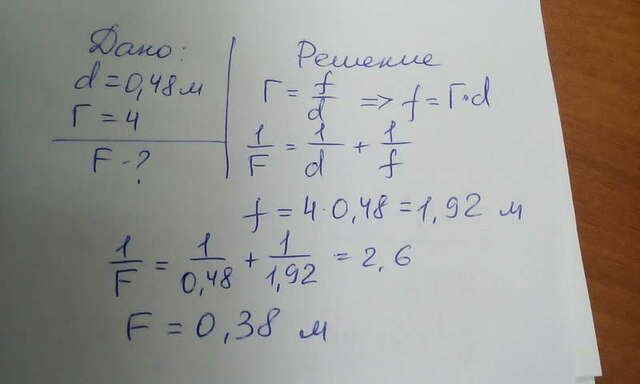 Дано:
d=0,48м
Г=4
F-?
Решение
Г = f/d => f=Г·d
1/F = 1/d + 1/f
f = 4·0,48=1,92 м
1/F = 1/0,48 + 1/1,92 = 2,6
F = 0,38 м